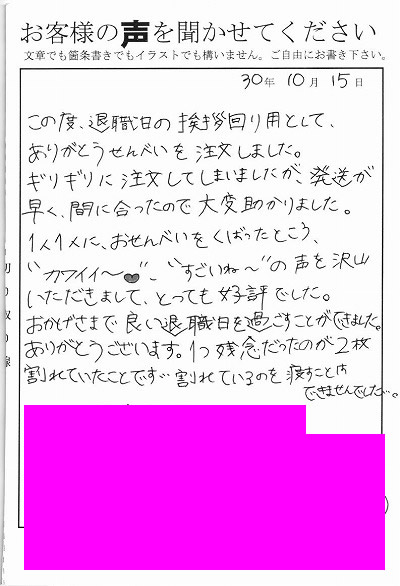 お客様の声を聞かせてください
文章でも箇条書きでもイラストでも構いません。ご自由にお書き下さい。
30年 10月 15日
この度、退職日の挨拶回り用として、
ありがとうせんべいを注文しました。
ギリギリに注文してしまいましたが、発送が
早く、間に合ったので大変助かりました。
1人1人に、おせんべいをくばったところ、
"カワイイ〜♥"、"すごいね〜"の声を沢山
いただきまして、とっても好評でした。
おかげさまで良い退職日を過ごすことができました。
ありがとうございます。1つ残念だったのが2枚
割れていたことです… 割れているのを渡すことは
できませんでした…。